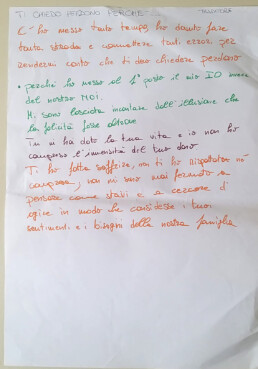 TI CHIEDO PERDONO PERCHÉ
Ci ho messo tanto tempo, ho dovuto fare
tanta strada e commettere tanti errori per
rendermi conto che ti devo chiedere perdono
• perché ho messo al 1° posto il mio IO invece
del nostro NOI.
Mi sono lasciata incantare dall'illusione che
la felicità fosse altrove
Tu mi ha dato la tua vita e io non ho
compreso l'immensità del tuo dono
Ti ho fatto soffrire, non ti ho rispettato né
compreso, non mi sono mai fermata a
pensare come stavi e a cercare di
agire in modo da considerare i tuoi
sentimenti e i bisogni della nostra famiglia